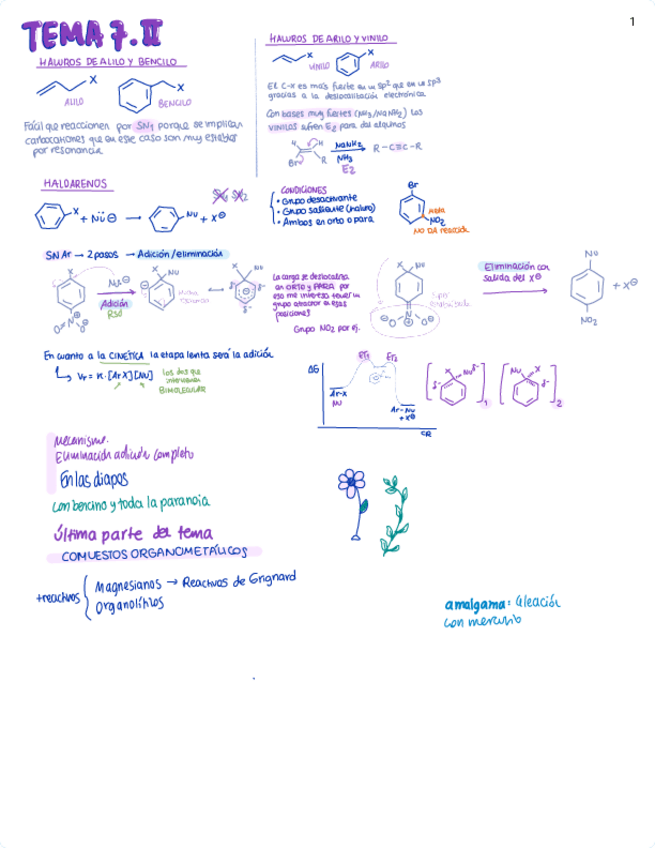 1
TEMA 7.II
HALUROS DE ALILO Y BENCILO
X
ALILO
X
BENCILO
Fácil que reaccionen por SN1 porque se implican
carbocationes que en este caso son muy estables
por resonancia
HALUROS DE ARILO Y VINILO
X
VINILO
X
ARILO
El C-X es más fuerte en un sp² que en un sp³
gracias a la deslocalización electrónica
Con bases muy fuertes (NH3/NaNH2) los
VINILOS sufren E2 para dar alquinos
H H
Br R
NaNH2
NH3
E2
R-C≡C-R
HALOARENOS
X + Nü⊖ → Nu + X⊖
CONDICIONES
• Grupo desactivante
• Grupo saliente (haluro)
• Ambos en orto o para
Br
meta
NO2
NO DA reacción
SNAr → 2 pasos → Adición/eliminación
X
O N O
Nu⊖
Adición
RSD
X Nu
X Nu
δ- δ-
δ-
La carga se deslocaliza
en ORTO y PARA por
eso me interesa tener un
grupo atractor en esas
posiciones
Grupo NO2 por ej.
X Nu
⊖O N O⊖
Eliminación con
salida del X⊖
NU
NO2
+ X⊖
En cuanto a la CINÉTICA la etapa lenta será la adición
Vr = K · [ArX][NU]
los dos que
intervienen
BIMOLECULAR
ΔG
ET1 ET2
Ar-X
NU
Ar-Nu
+ X⊖
CR
X Nu δ-
δ-
1
Nu X
δ-
2
Mecanismo.
Eliminación adición completo
En las diapos
con bencino y toda la paranoia
Última parte del tema
COMUESTOS ORGANOMETÁLICOS
+reactivos
Magnesianos → Reactivos de Grignard
Organolíticos
amalgama: aleación
con mercurio